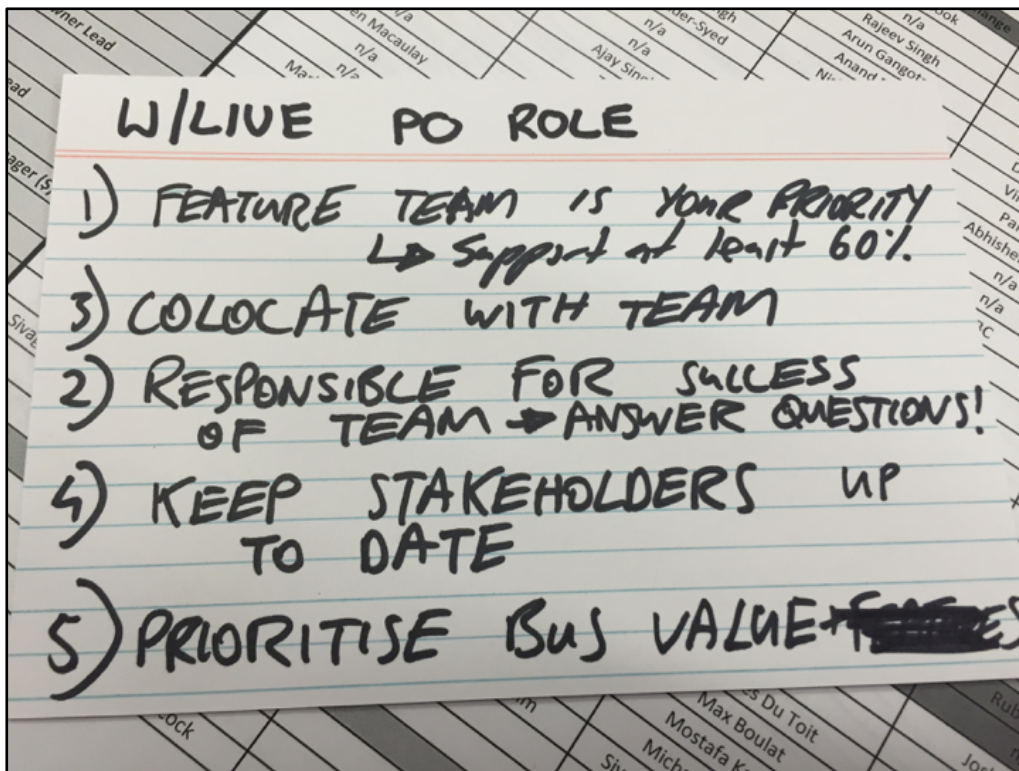 W/LIVE PO ROLE
1) FEATURE TEAM IS YOUR PRIORITY
↳ Support at least 60%
3) COLOCATE WITH TEAM
2) RESPONSIBLE FOR SUCCESS
OF TEAM → ANSWER QUESTIONS!
4) KEEP STAKEHOLDERS UP
TO DATE
5) PRIORITISE BUS VALUE
n/a
Macaulay
n/a
n/a
n/a
Ajay
n/a
Rajeev Singh
Arun
Anand
n/a
n/a
Du Toit
Max Boulat
Mostafa